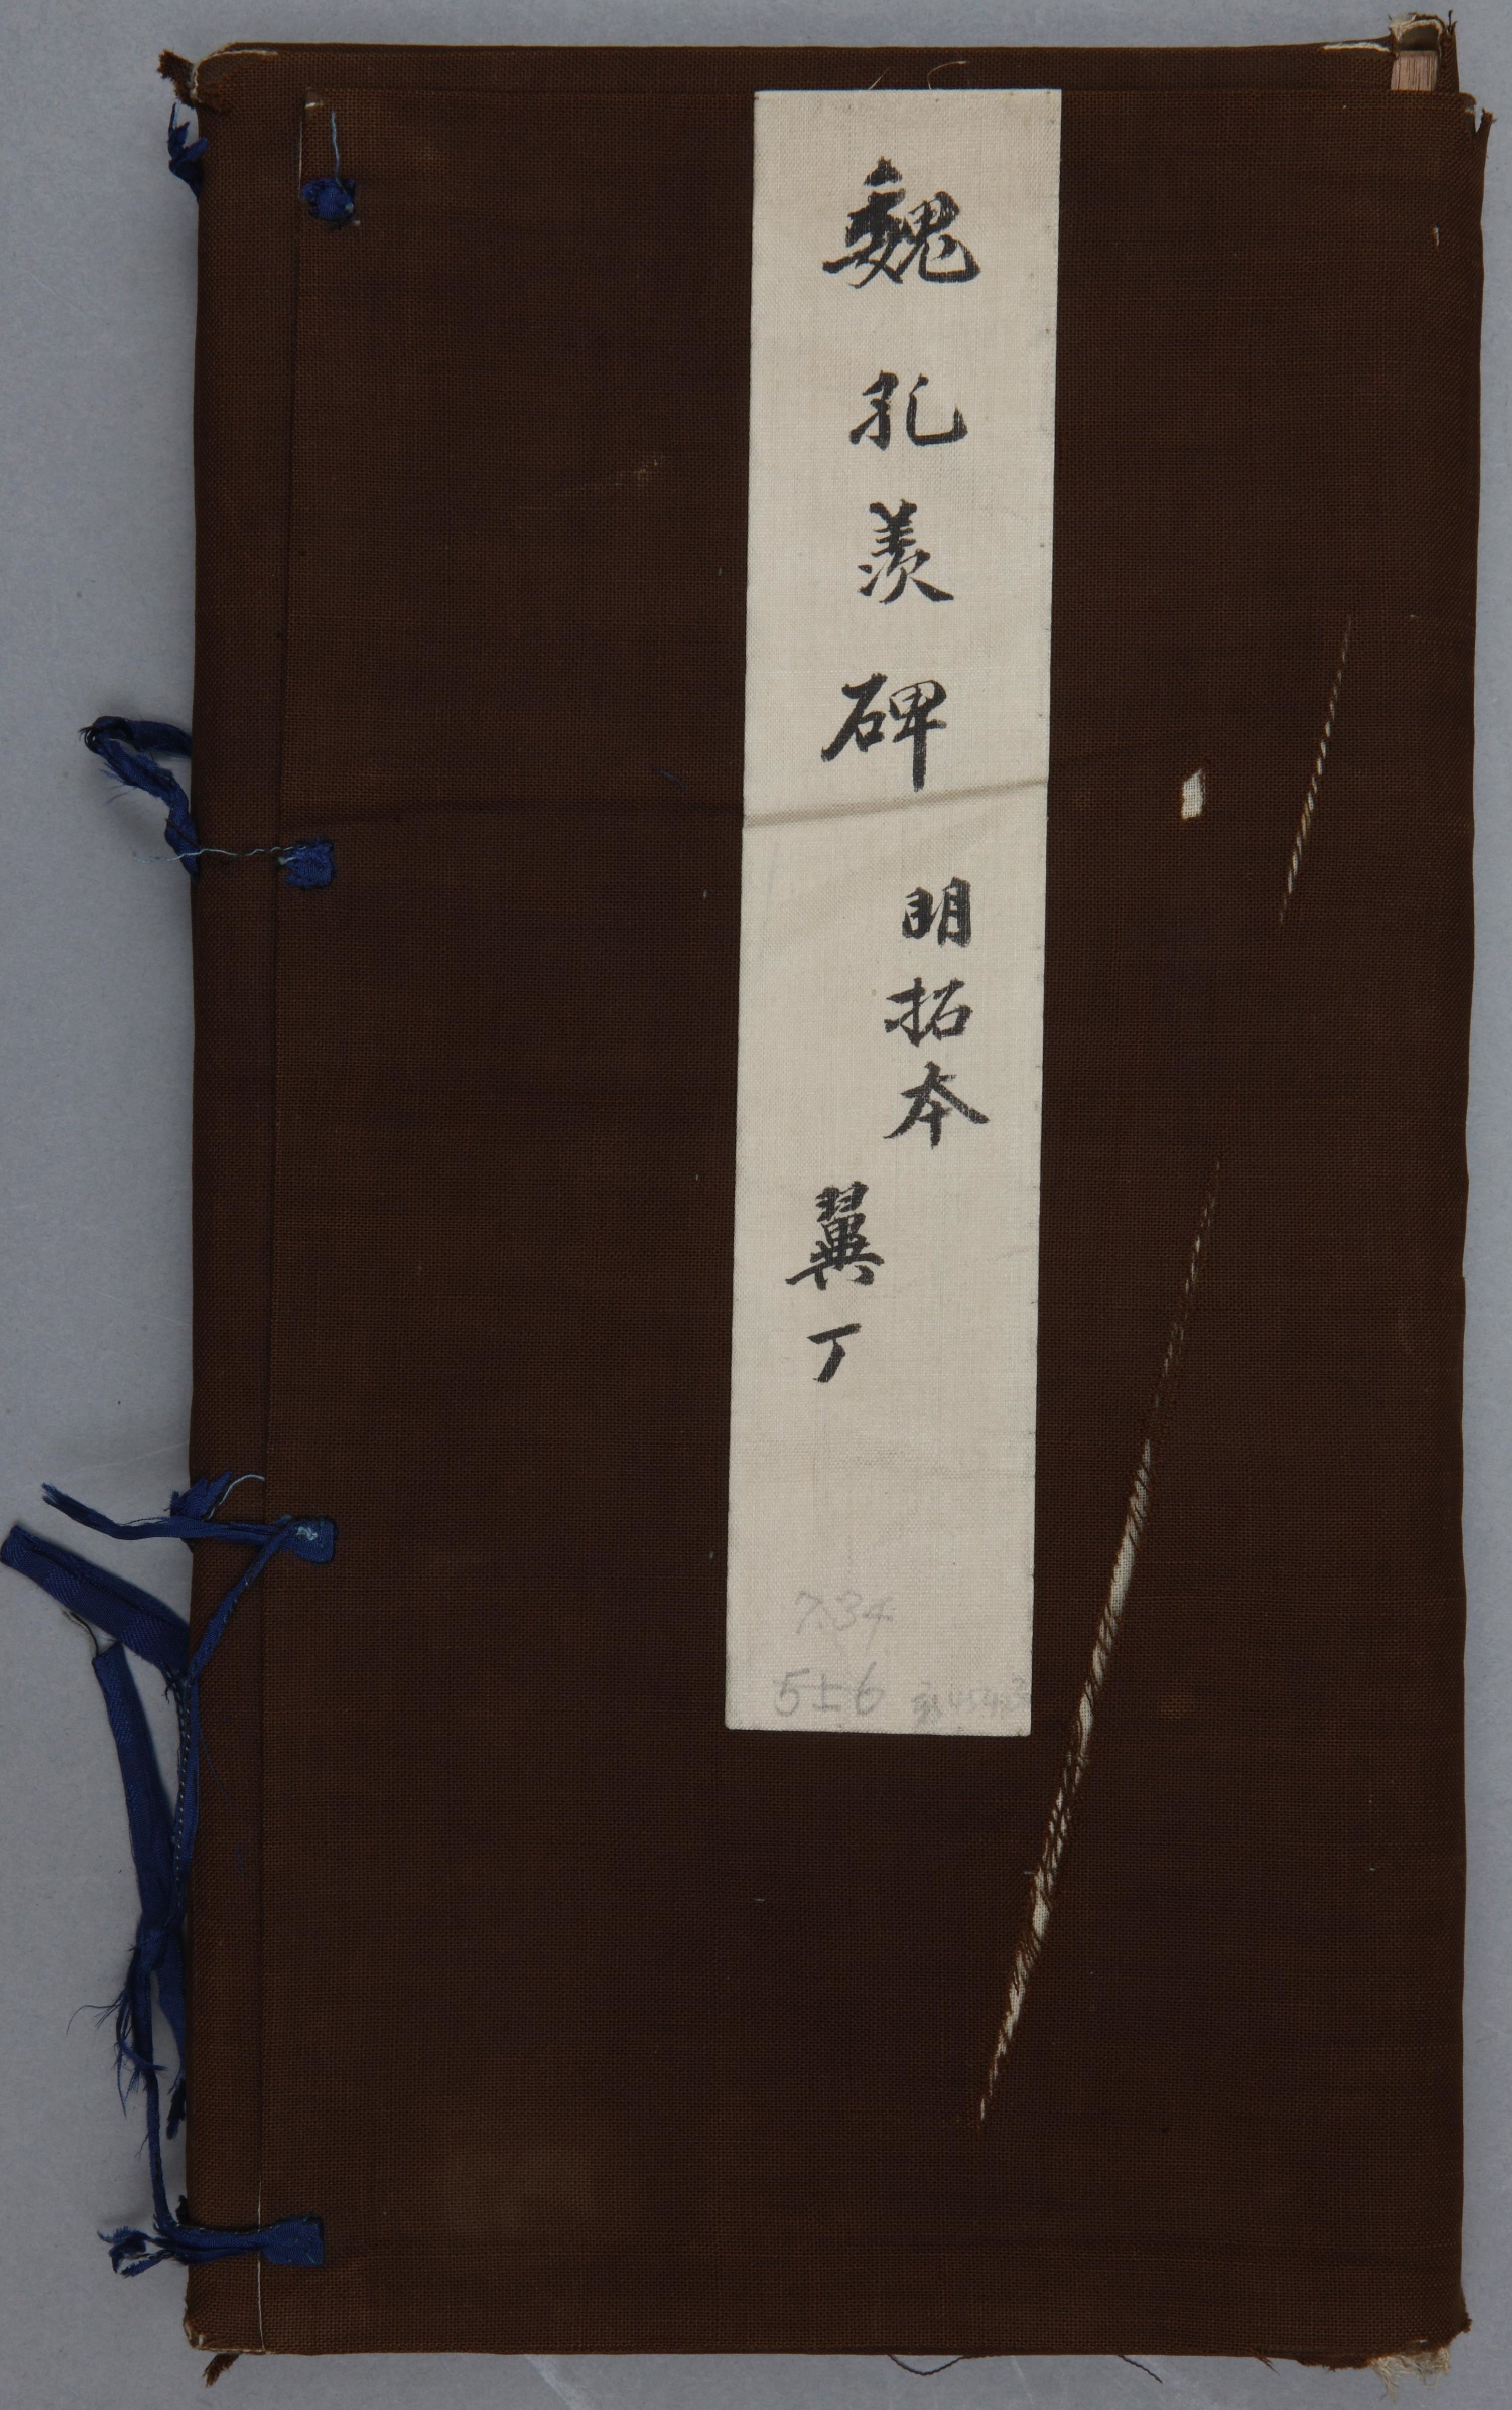 魏孔羨碑
明拓本
冀丁
7.34
5上6